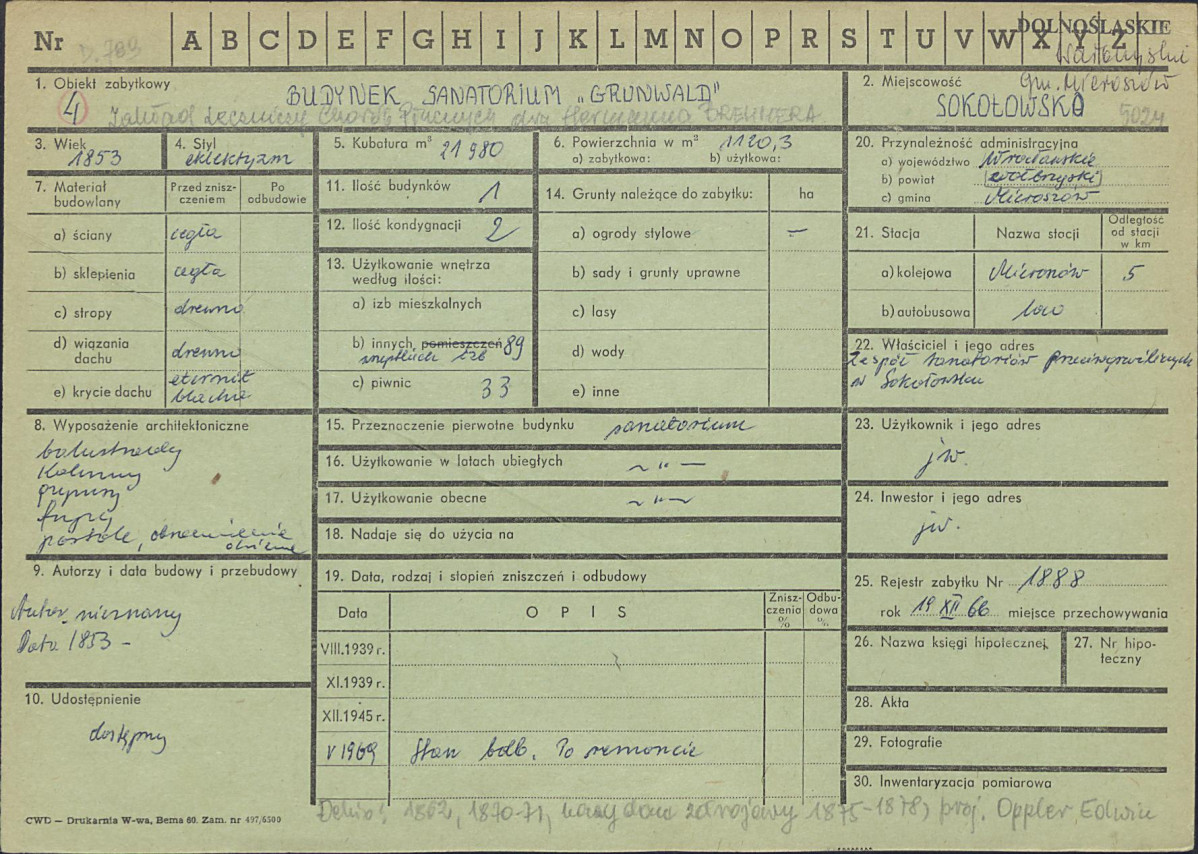 Nr D. 789 A B C D E F G H I J K L M N O P R S T U V W X Y Z DOLNOŚLĄSKIE
Wałbrzyski
gm. Mieroszów
1. Obiekt zabytkowy
4 BUDYNEK SANATORIUM „GRUNWALD”
Zakład Leczniczy Chorób Płucnych dra Hermanna BREHMERA
2. Miejscowość
SOKOŁOWSKO 5024
3. Wiek
1853
4. Styl
eklektyzm
5. Kubatura m³ 21 980
6. Powierzchnia w m² 1120,3
a) zabytkowa: b) użytkowa:
20. Przynależność administracyjna
a) województwo Wrocławskie
b) powiat wałbrzyski
c) gmina Mieroszów
7. Materiał budowlany
Przed zniszczeniem
Po odbudowie
a) ściany cegła
b) sklepienia cegła
c) stropy drewno
d) wiązania dachu drewno
e) krycie dachu eternit blacha
11. Ilość budynków 1
12. Ilość kondygnacji 2
13. Użytkowanie wnętrza
według ilości:
a) izb mieszkalnych
b) innych, pomieszczeń 89
wszystkich izb
c) piwnic 33
14. Grunty należące do zabytku: ha
a) ogrody stylowe —
b) sady i grunty uprawne
c) lasy
d) wody
e) inne
21. Stacja Nazwa stacji Odległość od stacji w km
a) kolejowa Mieroszów 5
b) autobusowa loco
22. Właściciel i jego adres
Zespół sanatoriów przeciwgruźliczych
w Sokołowsku
8. Wyposażenie architektoniczne
balustrady
Kolumny
gzymsy
fryzy
portale, obramienie
okienne
15. Przeznaczenie pierwotne budynku sanatorium
16. Użytkowanie w latach ubiegłych ~ " —
17. Użytkowanie obecne ~ " ~
18. Nadaje się do użycia na
23. Użytkownik i jego adres
jw.
24. Inwestor i jego adres
jw.
9. Autorzy i data budowy i przebudowy
Autor nieznany
Data 1853 -
19. Data, rodzaj i stopień zniszczeń i odbudowy
Data OPIS Zniszczenia % Odbudowa %
VIII.1939 r.
XI.1939 r.
XII.1945 r.
V 1969 Stan bdb. Po remoncie
25. Rejestr zabytku Nr 1888
rok 19 XII 66 miejsce przechowywania
26. Nazwa księgi hipotecznej
27. Nr hipoteczny
10. Udostępnienie
dostępny
28. Akta
29. Fotografie
30. Inwentaryzacja pomiarowa
Dehio: 1862, 1870-71, nowy dom zdrojowy 1875-1878, proj. Oppler Edwin
CWD — Drukarnia W-wa, Bema 60. Zam. nr 497/6500